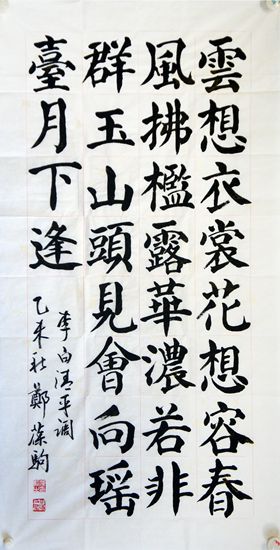 雲想衣裳花想容春
風拂檻露華濃若非
群玉山頭見會向瑶
臺月下逢
李白清平調
乙未秋鄭葆駒